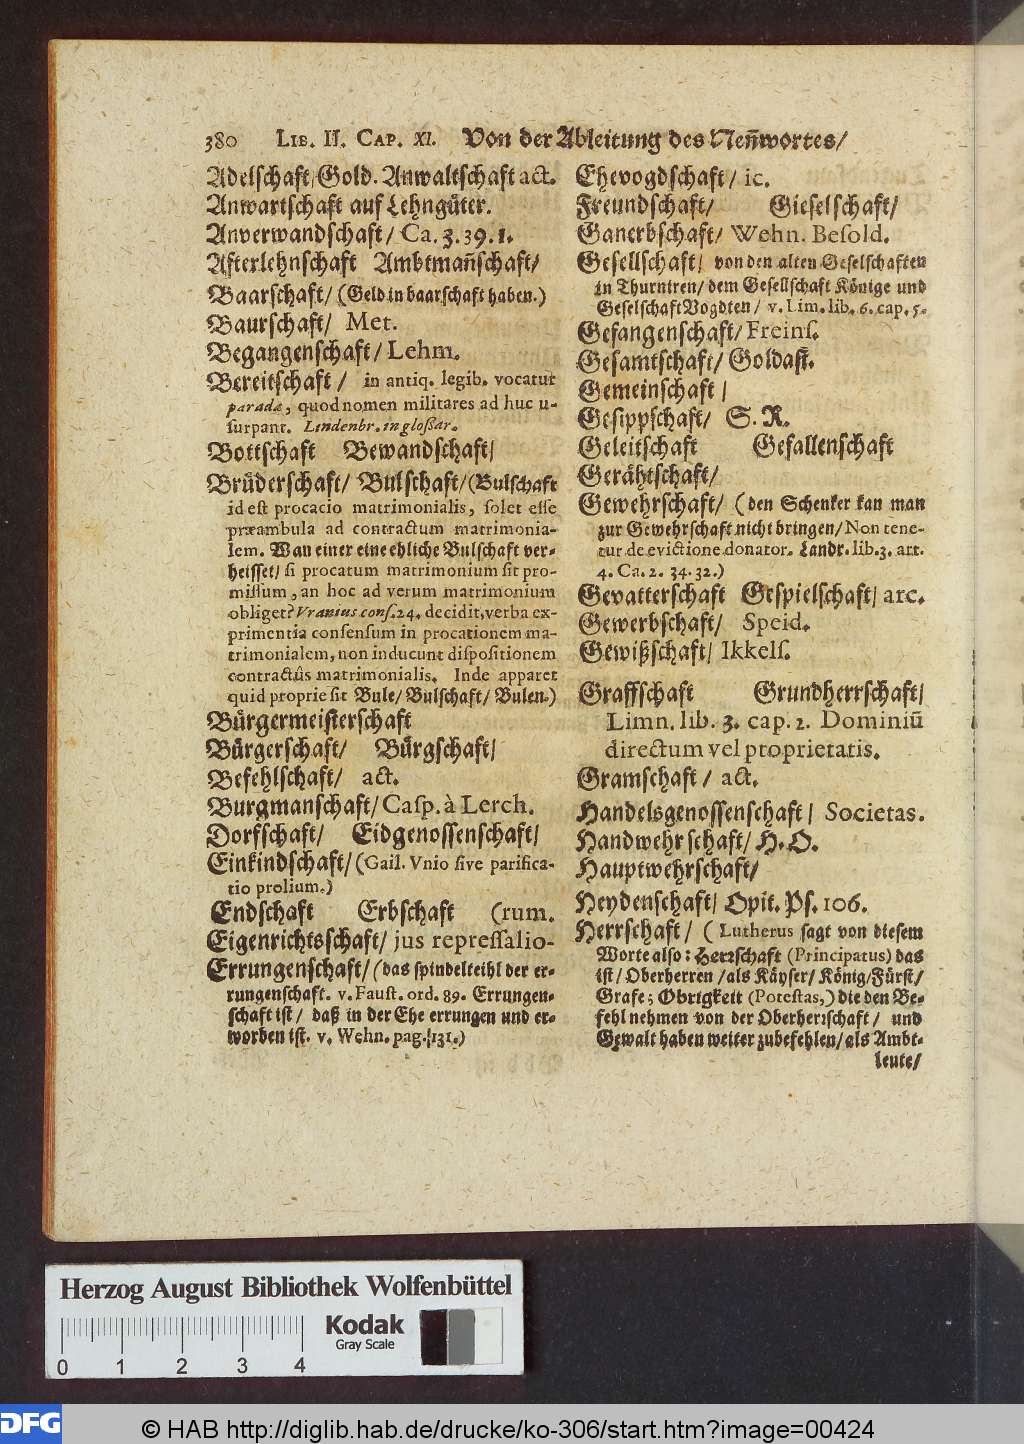 380 LIB. II. CAP. XI. Von der Ableitung des Nen̄wortes/
Adelschaft/Gold. Anwaltschaft act.
Anwartschaft auf Lehngüter.
Anverwandschaft/ Ca. 3. 39. 1.
Afterlehnschaft Ambtman̄schaft/
Baarschaft/ (Geld in baarschaft haben.)
Baurschaft/ Met.
Begangenschaft/ Lehm.
Bereitschaft/ in antiq. legib. vocatur
paradæ, quod nomen militares ad huc u-
surpant. Lindenbr. in gloßar.
Bottschaft Bewandschaft/
Brüderschaft/ Bulschaft/ (Bulschaft
id est procacio matrimonialis, solet esse
præambula ad contractum matrimonia-
lem. Wan einer eine ehliche Bulschaft ver-
heisset/ si procatum matrimonium sit pro-
missum, an hoc ad verum matrimonium
obliget? Vranius cons. 24. decidit, verba ex-
primentia consensum in procationem ma-
trimonialem, non inducunt dispositionem
contractûs matrimonialis. Inde apparet
quid proprie sit Bule/ Bulschaft/ Bulen.)
Bürgermeisterschaft
Bürgerschaft/ Bürgschaft/
Befehlschaft/ act.
Burgmanschaft/ Casp. à Lerch.
Dorfschaft/ Eidgenossenschaft/
Einkindschaft/ (Gail. Vnio sive parifica-
tio prolium.)
Endschaft Erbschaft (rum.
Eigenrichtsschaft/ jus repressalio-
Errungenschaft/ (das spindelteihl der er-
rungenschaft. v. Faust. ord. 89. Errungen-
schaft ist/ daß in der Ehe errungen und er-
worben ist. v. Wehn. pag. 131.)
Ehevogdschaft/ ic.
Freundschaft/ Gieselschaft/
Ganerbschaft/ Wehn. Besold.
Gesellschaft/ von den alten Geselschaften
in Thurniren/ dem Gesellschaft Könige und
Geselschaft Vogdten/ v. Lim. lib. 6. cap. 5.
Gefangenschaft/ Freins.
Gesamtschaft/ Goldast.
Gemeinschaft/
Gesippschaft/ S. R.
Geleitschaft Gefallenschaft
Gerähtschaft/
Gewehrschaft/ (den Schenker kan man
zur Gewehrschaft nicht bringen/ Non tene-
tur de evictione donator. Landr. lib. 3. art.
4. Ca. 2. 34. 32.)
Gevatterschaft Gespielschaft/ arc.
Gewerbschaft/ Speid.
Gewißschaft/ Ikkels.
Graffschaft Grundherrschaft/
Limn. lib. 3. cap. 1. Dominiū
directum vel proprietatis.
Gramschaft/ act.
Handelsgenossenschaft/ Societas.
Handwehrschaft/ H. O.
Hauptwehrschaft/
Heydenschaft/ Opit. Ps. 106.
Herrschaft/ (Lutherus sagt von diesem
Worte also: Herrschaft (Principatus) das
ist/ Oberherren/ als Käyser/ König/ Fürst/
Grafe; Obrigkeit (Potestas,) die den Be-
fehl nehmen von der Oberherrschaft/ und
Gewalt haben weiter zubefehlen/ als Ambt-
leute/
Herzog August Bibliothek Wolfenbüttel
Kodak
Gray Scale
0 1 2 3 4
DFG © HAB http://diglib.hab.de/drucke/ko-306/start.htm?image=00424